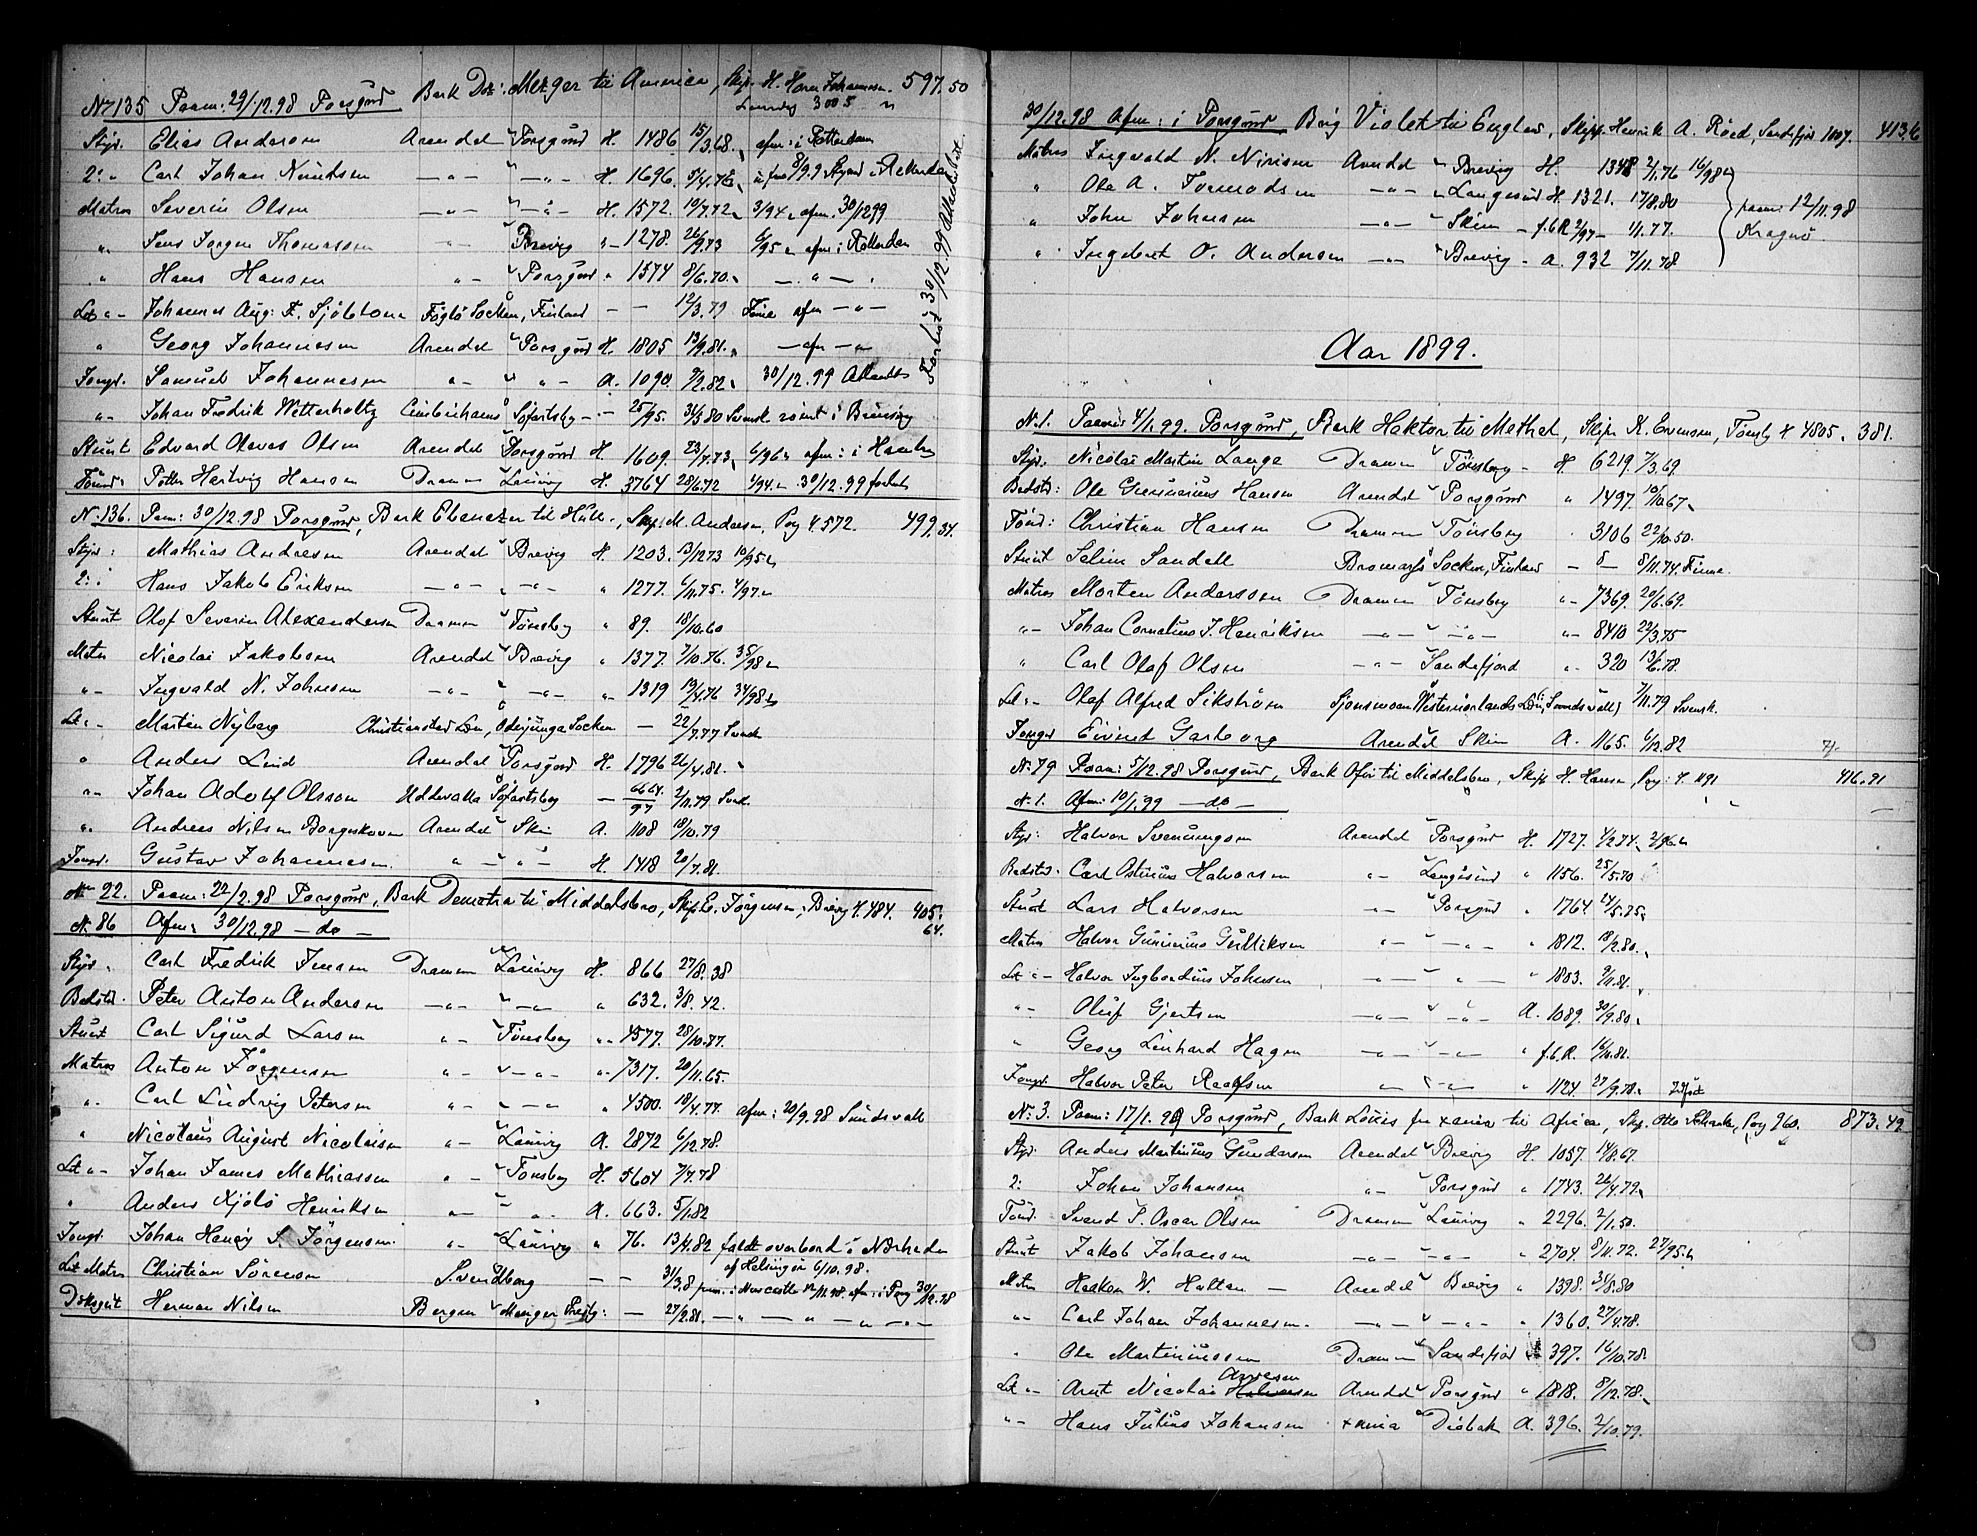 No 135 Paam: 29/12.98 Porsgrund Bark Dr: Mezger til America, Skip. H. Hans Johannesen. 597.50
Laurvig 3005
Styr. Elias Andersen Arendal " Porsgrund H. 1486 15/3.68. afm: i Rotterdam
2: " Carl Johan Knudsen — " — " — " — H. 1696. 5/4.76
Matros Severin Olsen — " — " — " — H. 1572. 10/7.72 3/94 " afm. 30/12 99
" Jens Jørgen Thomassen — " Brevig " — 1278. 26/9.73 6/95 " afm i Rotterdam
" Hans Hansen " — " Porsgrund " 1574 8/6.70 — " — "
Let " — Johannes Aug: F. Sjöblom Föglö Socken, Finland — — 12/3.79 Finne afm — " —
" Georg Johannesen Arendal " Porsgrund H. 1805 13/9.81. — afm — "
Jungm. Samuel Johannesen " — " " — A. 1090. 7/2.82 30/12.99
" — Johan Fredrik Wetterholtz Cimbrishamns Sjöfartsby — " — 25/95. 31/3 80 Svensk rømt i
Stuert Edvard Olaves Olsen Arendal " Porsgrund H. 1609. 23/7.73 6/96 " afm: i
Tømm: Petter Hertvig Hansen Dramm " Laurvig H. 3764 28/6.72 1/94. " 30/12.99 forladt
Forlod 30/12.99
N. 136. Paam: 30/12.98 Porsgrund, Bark Ebenezer til Hull, Skip. M. Andersen, Porsg H 572. 499.34.
Styr: Mathias Andresen Arendal " Brevig H. 1203. 13/12 73 10/95 "
2: " Hans Jakob Eriksen — " — " — " — " 1277. 6/11.75. 4/97. "
Stuert Olof Severin Alexandersen Dramm " Tønsberg " 89. 18/10.60
Matr Nicolai Jakobsen Arendal " Brevig " 1377. 7/10.76. 35/98 "
" — Ingvald N. Johnsen — " — " — " — " — 1319 19/4.76 34/98 "
Let " — Martin Nyberg Christianstad Län, Oderjunga Socken — 22/7.77 Svensk
" Anders Lind Arendal " Porsgrund H. 1796 26/4.81.
" — Johan Adolf Olsson Uddevalla Sjöfartsby — 6664/97 2/11.79 Svensk
" Andreas Nilsen Borgeskoven Arendal " Skien A. 1108 18/10.79
Jungm. Gustav Johannesen " — " — H. 1418 20/7.81.
No 22. Paam: 22/2.98 Porsgrund, Bark Demetra til Middelsbro, Skip E. Jørgensen, Brevig H. 484. 405.
N. 86 Afm: 30/12.98 — do — 64.
Styr " Carl Fredrik Jensen Dramm " Laurvig H. 866 27/8.38
Bedstd. Peter Anton Andersen — " — " — " — " 632. 3/8.42.
Stuert Carl Sigurd Larsen " — Tønsberg " " 4577. 28/10.77.
Matros Anton Jørgensen " — " — " — " — 7317. 20/11.65.
" Carl Ludvig Petersen " — " — " — " 4500. 18/4.77. afm: 20/9.98 Sundsvall
" Nicolaus August Nicolaisen " — Laurvig A. 2872 6/12.78.
Let " — Johan James Mathiassen " — Tønsberg H. 5604 7/4.78
" Anders Kjølø Henriksen " — " — " A. 663. 5/1.82
Jungm. Johan Henry S. Jörgensen. " — Laurvig " 76. 13/4.82 faldt overbord i Nærheden
af Helsingør 6/10.98.
Let Matros Christian Sörensen Svendborg — — 31/3.8 paam. i Newcastle afm: i Porsg 30/12.98
Dæksgut Herman Nilsen Bergen " Manger — 27/2.81. — " — " — " — " —
30/12.98 Afm: i Porsgrund Brig Violet til England, Skip. Henrik A. Röed, Sandefjor 1107. 413.6
Matros Ingvald N. Nirisen Arendal " Brevig H. 1348 2/1.76 16/98
" Ole A. Tormodsen — " — " Langesund H 1321. 17/8.80
" John Johnsen — " — " Skien — f.6 R 2/97 — 1/1.77.
" Ingebret O. Andersen — " — " Brevig — A. 932 7/11.78
paam: 12/11.98
Kragerø
Aar 1899.
N. 1. Paam: 4/1.99. Porsgrund, Bark Haktor til Methel, Skip. K. Evensen, Tønsbg H 4805. 381.
Styr. Nicolai Martin Lange Dramm " Tønsberg — H. 6219. 7/3.69.
Bedstd: Ole Gunnerius Hansen Arendal " Porsgrund " 1497. 10/10.67
Tømd: Christian Hansen Dramm " Tønsberg " 3106 22/10.50.
Stuert Selim Sandell Bromarfs Socken, Finland — " — 8/11.74. Finne.
Matros Morten Anderssen Dramm " Tønsberg " — 7369. 20/1.69.
" — Johan Cornelius J. Henriksen — " — " — " — " — 8410 22/3.75
" Carl Olaf Olsen — " — " Sandefjord " — 320 13/6.78.
Let " — Olaf Alfred Sikström Westernorlands Län, Sundsvall) 7/11.79 Svensk.
Jungm Eivind Garborg Arendal Skien A. 1165. 6/12.82
N. 79 Paam: 5/12.98 Porsgrund, Bark Ofir til Middelsbro, Skip. H. Hansen, Porsg: H. 1191 416.91
N. 1. Afm: 10/1.99 — do —
Styr: Halvor Svenningsen Arendal " Porsgrund H. 1727. 4/2.74. 2/96.
Bedstd. Carl Osmius Halvorsen " — " Langesund " 1156. 25/5.70
Stuert Lars Halvorsen " — " Porsgrund " 1764. 24/5.75.
Matros Halvor Gunnerius Gulliksen " — " — " — " 1812. 18/2.80.
Let " — Halvor Ingbordius Johnsen " — " " 1803. 9/11.81.
" — Oluf Gjertsen — " — " — " — A. 1089. 30/9.80.
" Georg Linhard Hagen — " — " — " — " f.6.R. 16/10.81.
Jungm. Halvor Peter Raafsen " — " — " — " 1124. 27/9.78.
N. 3. Paam: 17/1.99 Porsgrund, Bark Louise fra xania til Africa, Skip. Otto Schrader, Porsg 960. 873.42
Styr. Anders Martinius Gundersen Arendal " Brevig H. 1057. 14/8.67.
2: Johan Johansen " — " Porsgrund " 1743. 26/4.79.
Tømd. Svend T. Oscar Olsen Dramm " Laurvig " 2296. 2/1.50.
Stuert Jakob Johansen — " — " — " — " 2704. 8/11.72. 27/95.
Matros Haakon W. Holtan — Arendal " Brevig " 1398. 31/8.80
" — Carl Johan Johannesen. — " — " — " — " 1360. 27/4.78.
" Ole Martiniussen Dramm " Sandefjord " 397. 16/10.78.
Let " — Arnt Nicolai Halvorsen Arvesen Arendal " Porsgrund " 1818. 8/12.78.
" — Hans Julius Johansen xania " Drøbak A. 396. 2/10.79.